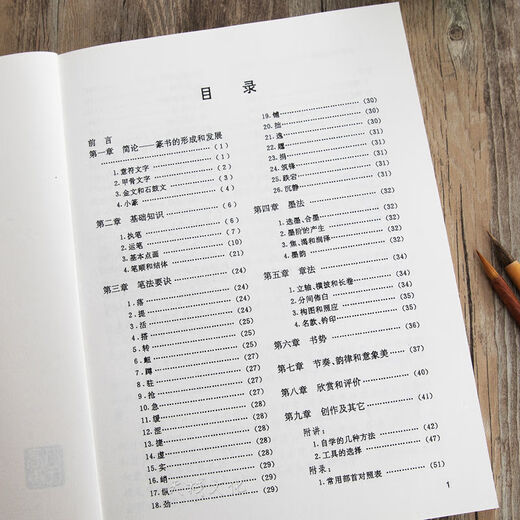 目 录
前 言
第一章 简论——篆书的形成和发展
(1)
1.意符文字 (1)
2.甲骨文字 (2)
3.金文和石鼓文 (3)
4.小篆 (4)
第二章 基础知识 (6)
1.执笔 (6)
2.运笔 (7)
3.基本点画 (10)
4.笔顺和结体 (21)
第三章 笔法要诀 (24)
1.落 (24)
2.提 (24)
3.活 (24)
4.搭 (24)
5.转 (25)
6.衄 (25)
7.蹲 (27)
8.驻 (27)
9.抢 (27)
10.急 (28)
11.缓 (28)
12.涩 (28)
13.捷 (28)
14.虚 (28)
15.实 (29)
16.峭 (29)
17.纵 (29)
18.劲 (29)
19.憾 (30)
20.拙 (30)
21.逸 (30)
22.趯 (30)
23.捐 (31)
24.筑锋 (31)
25.跌宕 (31)
26.沉静 (31)
第四章 墨法 (32)
1.选墨、合墨 (32)
2.墨阶的产生 (32)
3.焦、渴和润泽 (32)
4.墨韵 (32)
第五章 章法 (34)
1.立轴、横披和长卷 (34)
2.分间佈白 (34)
3.构图和照应 (34)
4.名款、钤印 (34)
第六章 书势 (36)
第七章 节奏、韵律和意象美 (37)
第八章 欣赏和评价 (40)
第九章 创作及其它 (41)
附讲：
1.自学的几种方法 (42)
2.工具的选择 (47)
附录：
1.常用部首对照表 (51)
1